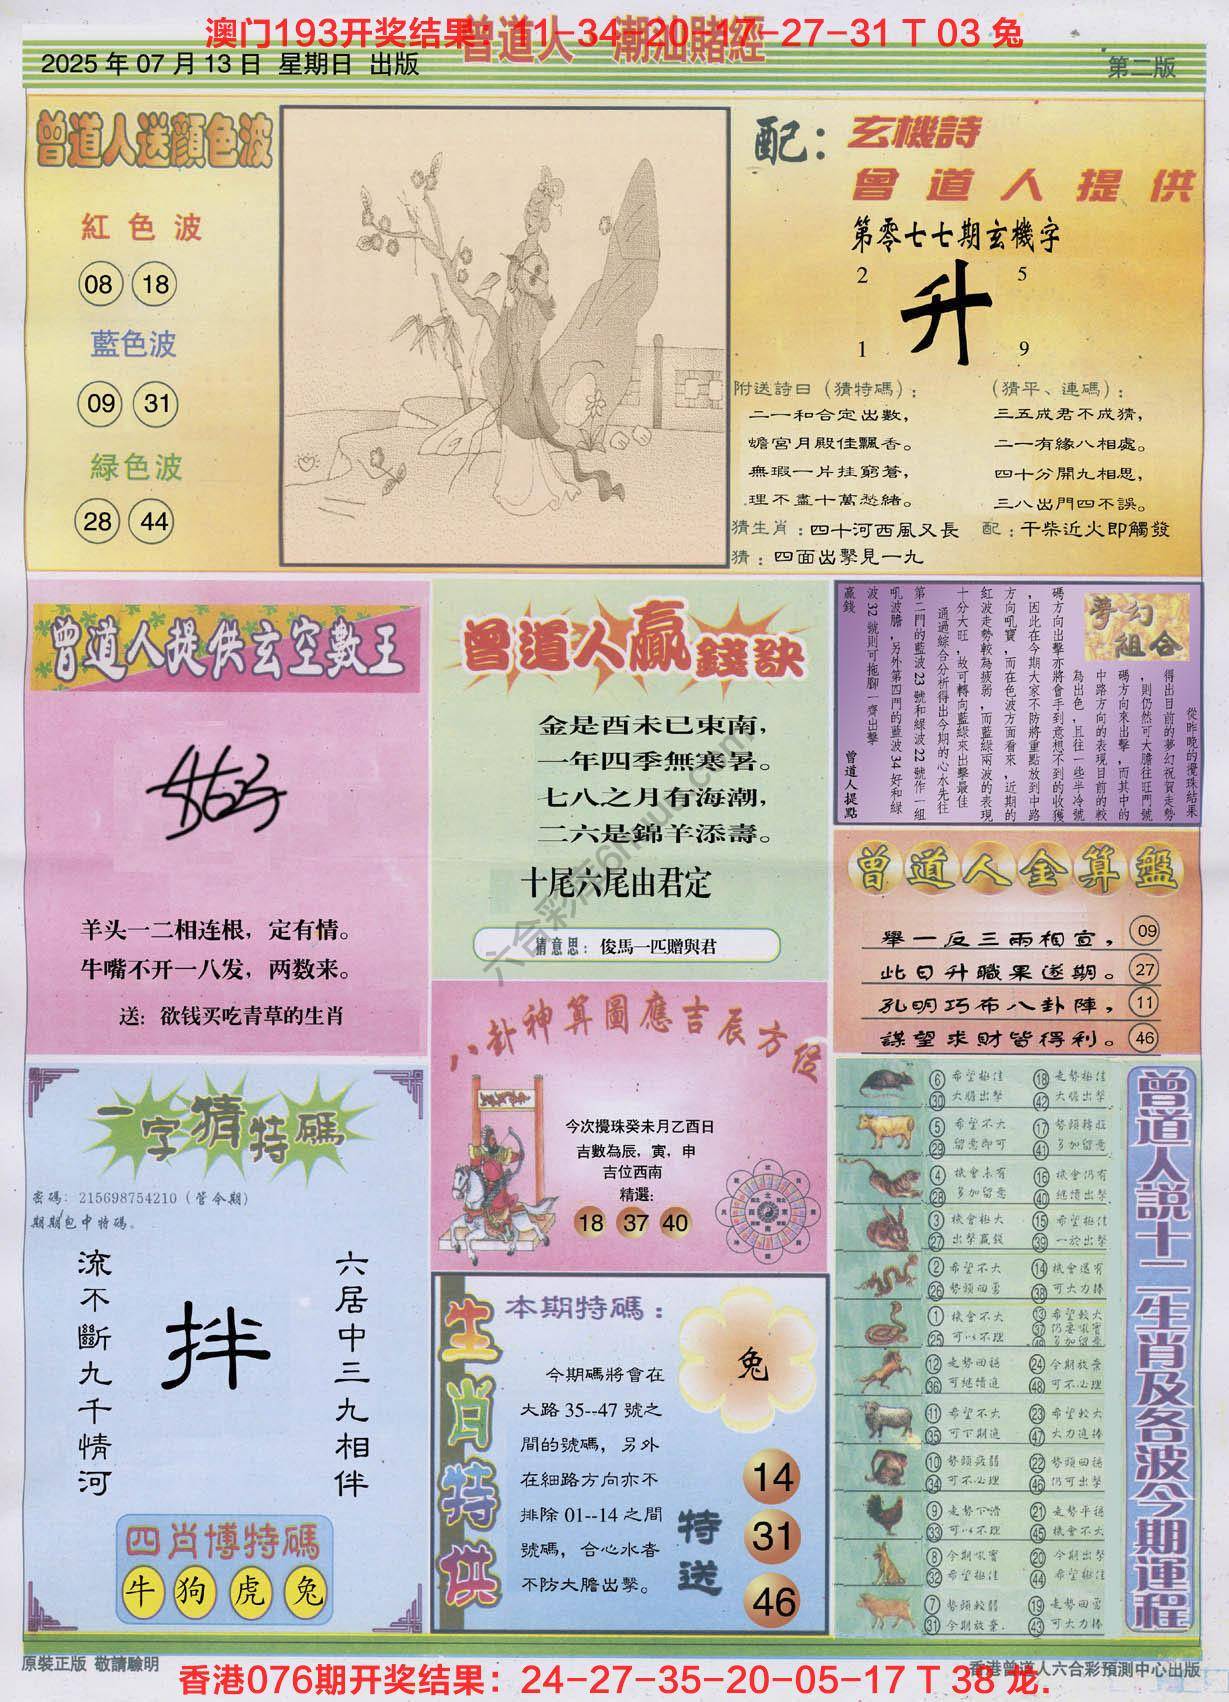 澳门193开奖结果：11-34-20-17-27-31 T 03 兔
曾道人 潮汕賭經
2025 年 07 月 13 日 星期日 出版
第二版
曾道人送顏色波
紅色波
08 18
藍色波
09 31
緑色波
28 44
配：玄機詩
曾道人提供
第零七七期玄機字
2 5
升
1 9
附送詩曰（猜特碼）：
二一和合定出數，
蟾宮月殿佳飄香。
無瑕一片挂窮蒼，
理不盡十萬愁緒。
（猜平、連碼）：
三五成君不成猜，
二一有緣八相處。
四十分開九相思，
三八出門四不誤。
猜生肖：四十河西風又長
配：干柴近火即觸發
猜：四面出擊見一九
曾道人提供玄空數王
羊头一二相连根，定有情。
牛嘴不开一八发，两数来。
送：欲钱买吃青草的生肖
曾道人贏錢訣
金是酉未已東南，
一年四季無寒暑。
七八之月有海潮，
二六是錦羊添壽。
十尾六尾由君定
猜意思：俊馬一匹贈與君
夢幻組合
從昨晚的攪珠結果
得出目前的夢幻祝賀走勢
，則仍然可大膽往旺門號
碼方向來出擊，而其中的
中路方向的表現目前的較
為出色，且往一些半冷號
碼方向出擊亦將會手到意想不到的收獲
，因此在今期大家不防將重點放到中路
方向吼寶，而在色波方面看來，近期的
紅波走勢較為疲弱，而藍綠兩波的表現
十分大旺，故可轉向藍綠來出擊最佳
通過綜合分析得出今期的心水先往
第二門的藍波 23 號和綠波 22 號作一組
吼波膽，另外第四門的藍波 34 好和綠
波 32 號則可拖腳一齊出擊
贏錢
曾道人提點
曾道人金算盤
舉一反三兩相宜， 09
此日升職果遂期。 27
孔明巧布八卦陣， 11
謀望求財皆得利。 46
八卦神算圖應吉辰方位
今次攪珠癸未月乙酉日
吉數為辰，寅，申
吉位西南
精選：
18 37 40
一字猜特碼
密碼：215698754210（管今期）
期期包中特碼。
流不斷九千情河
拌
六居中三九相伴
四肖博特碼
牛 狗 虎 兔
生肖特供
本期特碼：
兔
今期碼將會在
大路 35--47 號之
間的號碼，另外
在細路方向亦不
排除 01--14 之間
號碼，合心水者
不防大膽出擊。
特送
14
31
46
曾道人説十二生肖及各波今期運程
6 希望極佳 18 走勢極佳
30 大膽出擊 42 大膽出擊
5 希望不大 17 勢頭轉旺
29 留意即可 41 多加留意
4 機會未有 16 機會仍有
28 多加留意 40 繼續出擊
3 機會極大 15 希望極佳
27 出擊贏錢 39 一於出擊
2 希望不大 14 機會還有
26 勢頭回勇 38 可大力捧
1 機會不大 13 希望較大
25 可以不理 37 仍要吼實
49 多加留意
12 走勢回穩 24 今期放棄
36 可繼續追 48 可不必理
11 希望不大 23 希望較大
35 可下期追 47 大力追捧
10 勢頭疲弱 22 勢頭回穩
34 可不必理 46 仍可出擊
9 走勢下滑 21 走勢平穩
33 可以不理 45 機會不大
8 今期吼實 20 今期出擊
32 希望極佳 44 希望極佳
7 勢頭較弱 19 走勢回勇
31 今期放棄. 43 可大力捧
原裝正版 敬請驗明
香港076期开奖结果：24-27-35-20-05-17 T 38 龙.
香港曾道人六合彩預測中心出版